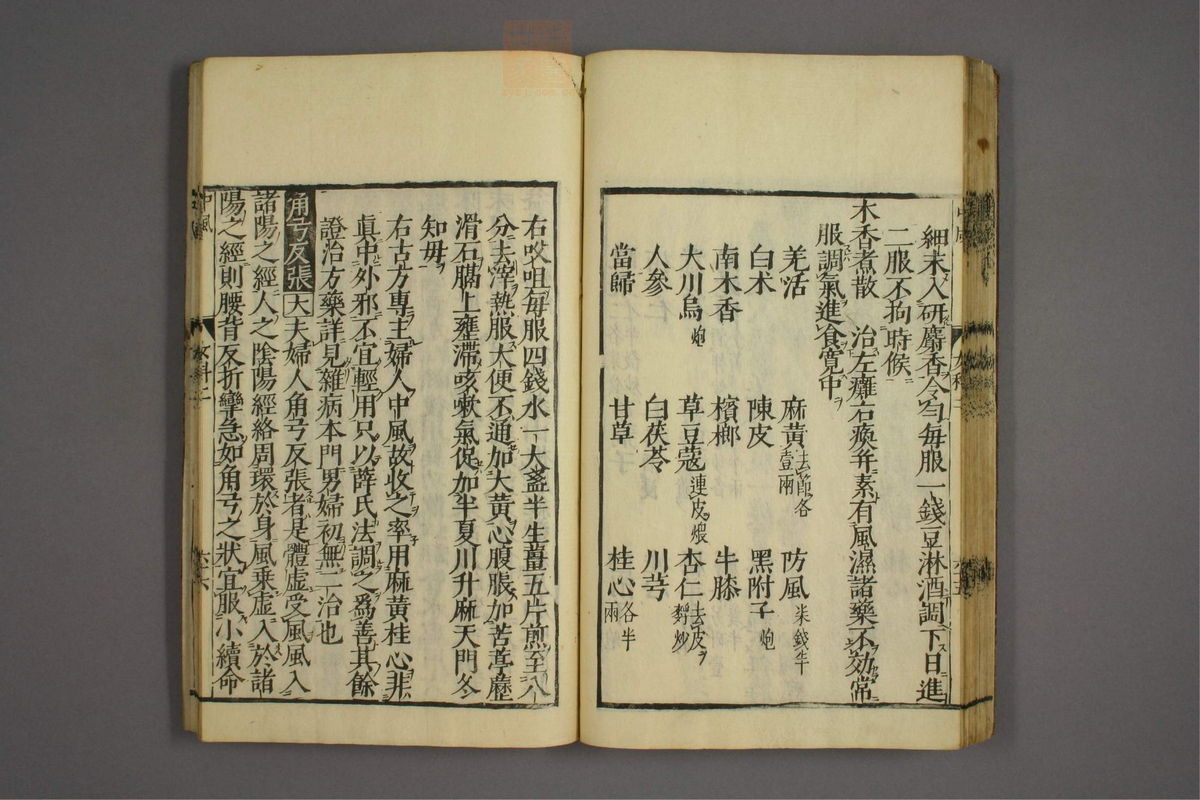 細末入研麝香令勻每服一錢豆淋酒調下日進
二服不拘時候
木香煮散 治左癱右瘓并素有風濕諸藥不效常
服調氣進食寬中
羌活 麻黃去節各壹兩 防風柒錢半
白朮 陳皮 黑附子炮
南木香 檳榔 牛膝
大川烏炮 草豆蔻連皮煨 杏仁去皮麩炒
人參 白茯苓 川芎
當歸 甘草 桂心各半兩
右㕮咀每服四錢水一大盞半生薑五片煎至八
分去滓熱服大便不通加大黃心腹脹加苦葶藶
滑石膈上壅滯咳嗽氣促加半夏川升麻天門冬
知母
右古方專主婦人中風故收之率用麻黃桂心非
眞中外邪不宜輕用只以薛氏法調之爲善其餘
證治方藥詳見雜病本門男婦初無二治也
角弓反張 大夫婦人角弓反張者是體虛受風風入
諸陽之經人之陰陽經絡周環於身風乘虛入於諸
陽之經則腰背反折攣急如角弓之狀宜服小續命
中風
女科二
六六